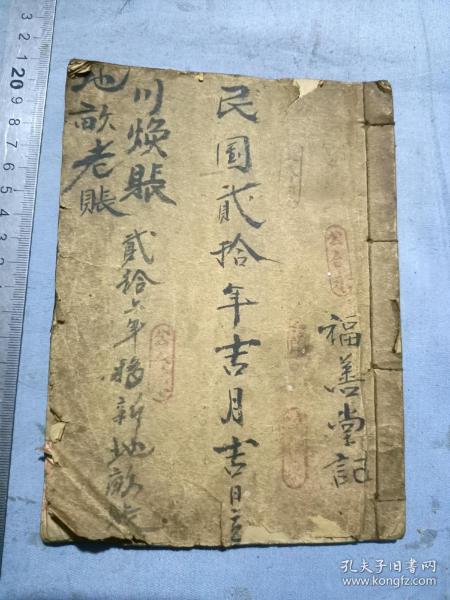 福善堂記
民国貳拾年吉月吉日立
川煥賬
地畝老賬
貳拾六年 新地畝
孔夫子旧书网
www.kongfz.com
3 2 1 20 9 8 7 6